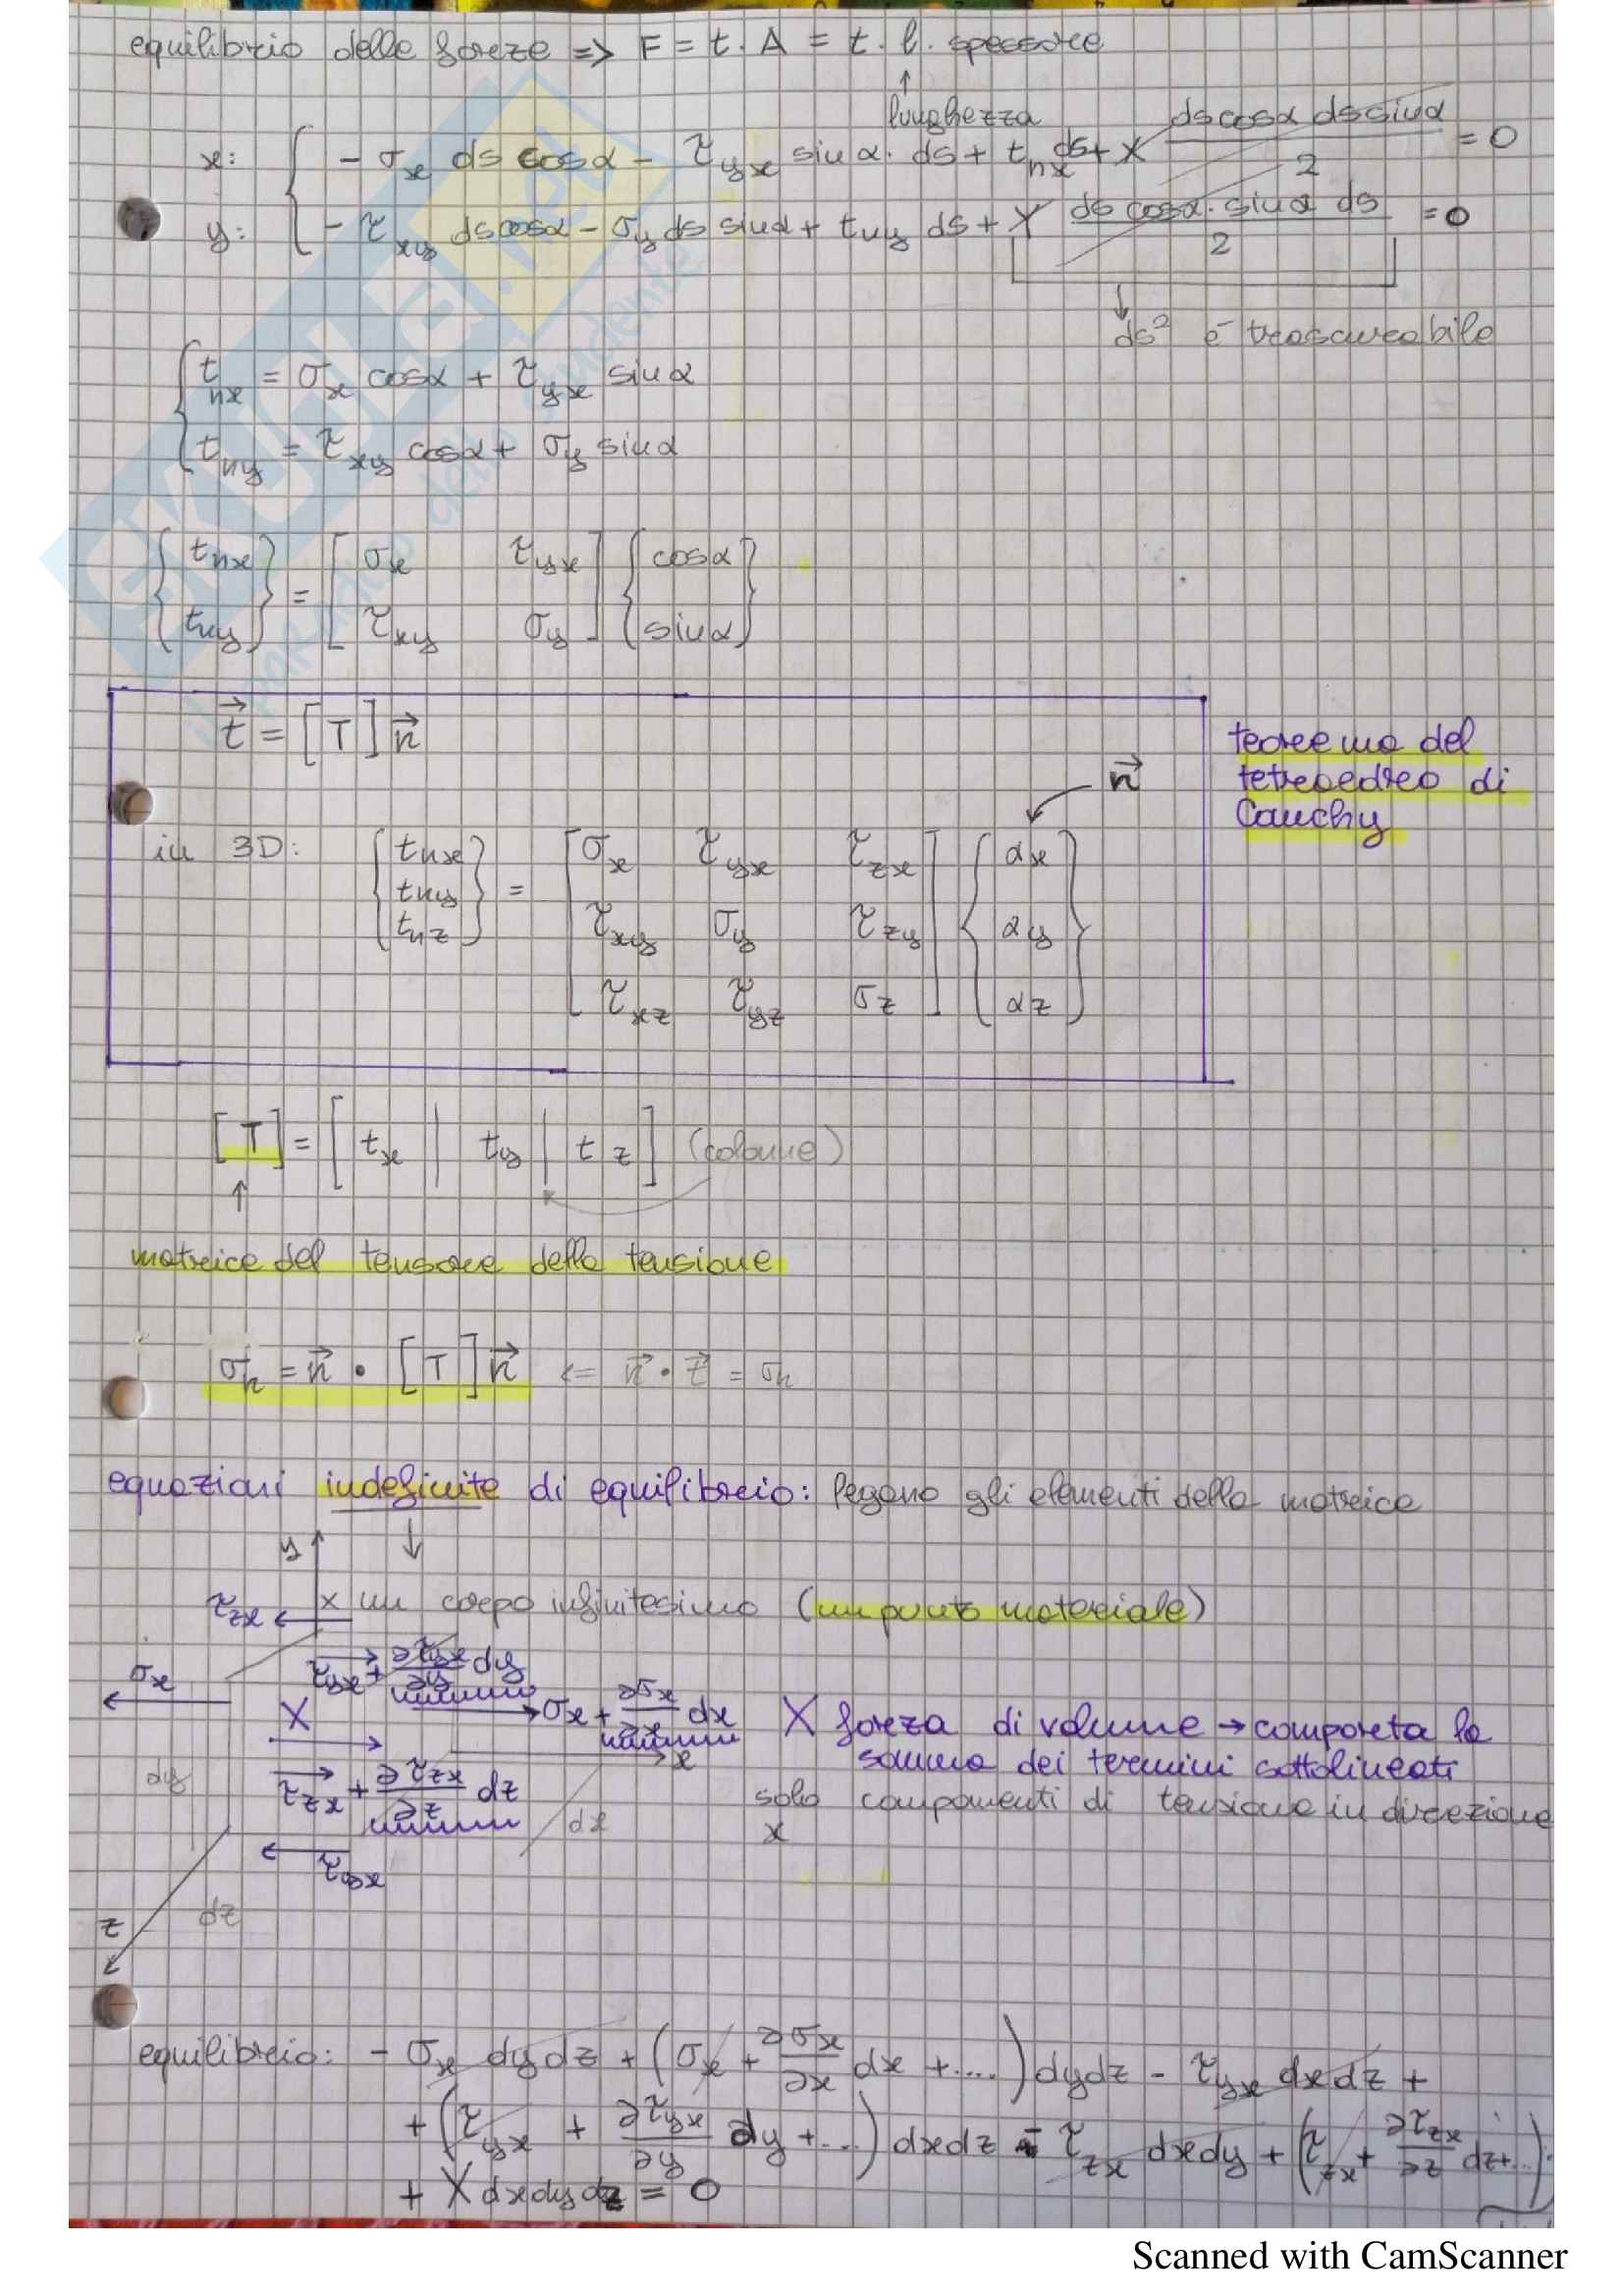 equilibrio delle forze => F = t. A = t. l. spessore
↑
lunghezza
x: { - σx ds cosα - τyx sinα. ds + tnx ds + X (ds cosα ds sinα)/2 = 0
y: { - τxy ds cosα - σy ds sinα + tny ds + Y (ds cosα. sinα ds)/2 = 0
↓
ds² è trascurabile
{ tnx = σx cosα + τyx sinα
{ tny = τxy cosα + σy sinα
{ tnx } = [ σx τyx ] { cosα }
{ tny } [ τxy σy ] { sinα }
t⃗ = [T] n⃗
teorema del
tetraedro di
Cauchy
n⃗
in 3D: { tnx } = [ σx τyx τzx ] { αx }
{ tny } [ τxy σy τzy ] { αy }
{ tnz } [ τxz τyz σz ] { αz }
[T] = [ tx | ty | tz ] (colonne)
↑
matrice del tensore della tensione
σn = n⃗ • [T] n⃗ <= n⃗ • t⃗ = σn
equazioni indefinite di equilibrio: legano gli elementi della matrice
y ↓
τzx x un corpo infinitesimo (un punto materiale)
σx τyx + ∂τyx/∂y dy
X σx + ∂σx/∂x dx X forza di volume → comporta la
x somma dei termini sottolineati
dy τzx + ∂τzx/∂z dz dx solo componenti di tensione in direzione
x
τyx
z dz
equilibrio: - σx dydz + (σx + ∂σx/∂x dx +....) dydz - τyx dxdz +
+ (τyx + ∂τyx/∂y dy +...) dxdz - τzx dxdy + (τzx + ∂τzx/∂z dz+...).
+ X dxdydz = 0
Scanned with CamScanner